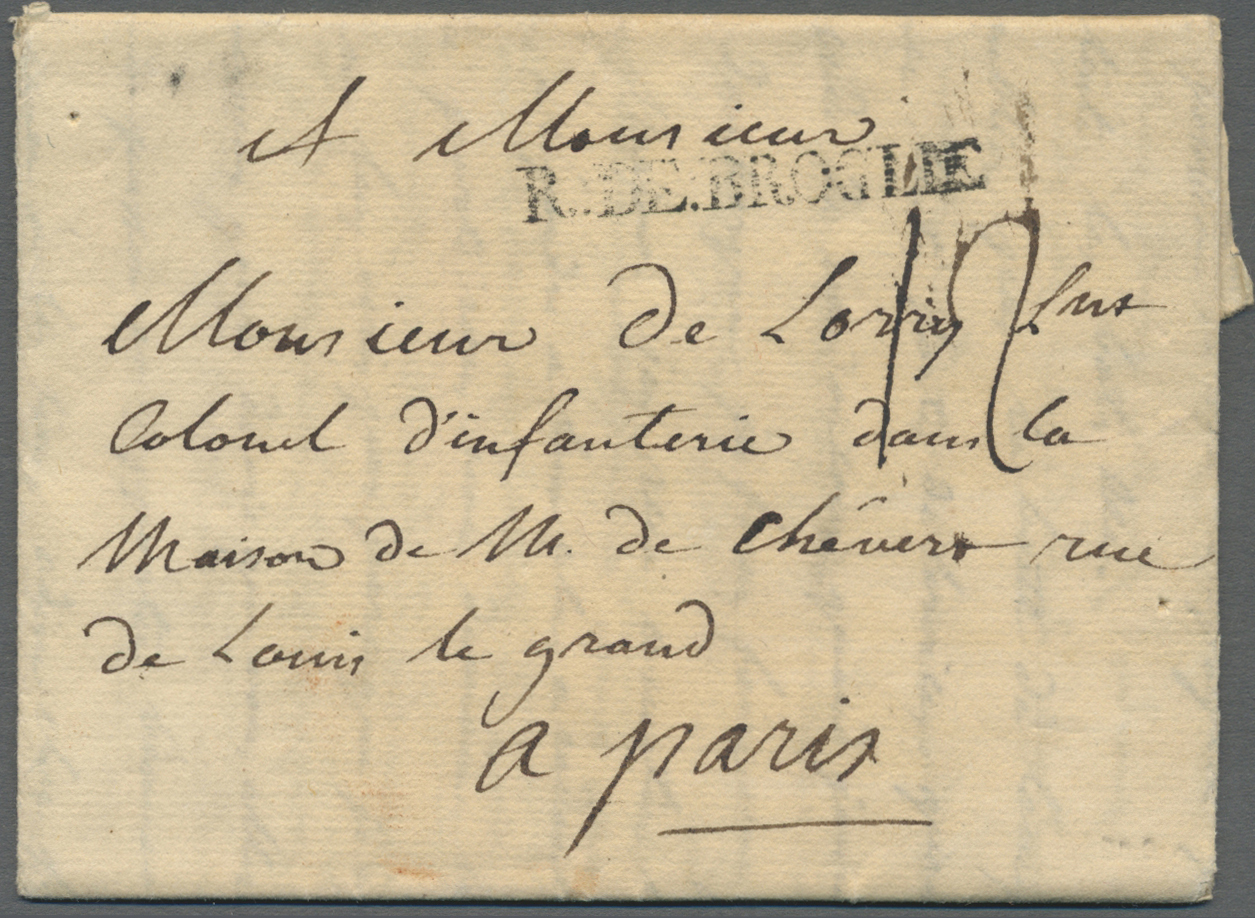 A Monsieur
R. DE. BROGLIE
12
Monsieur de Lorry Lnt
Colonel d'infanterie dans la
Maison de M. de Chévert rue
de Louis le grand
a paris